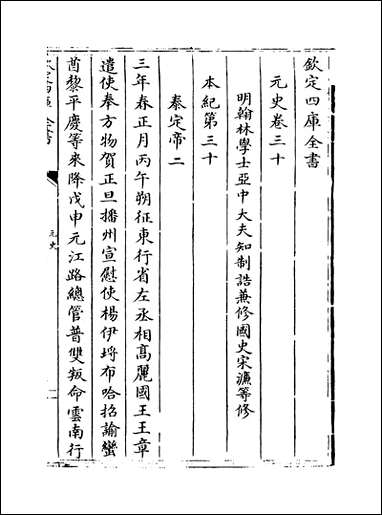 欽定四庫全書
元史卷三十
明翰林學士亞中大夫知制誥兼修國史宋濂等修
本紀第三十
泰定帝二
三年春正月丙午朔征東行省左丞相高麗國王王章
遣使奉方物賀正旦播州宣慰使楊伊埒布哈招諭蠻
酋黎平慶等來降戊申元江路總管普雙叛命雲南行
元史